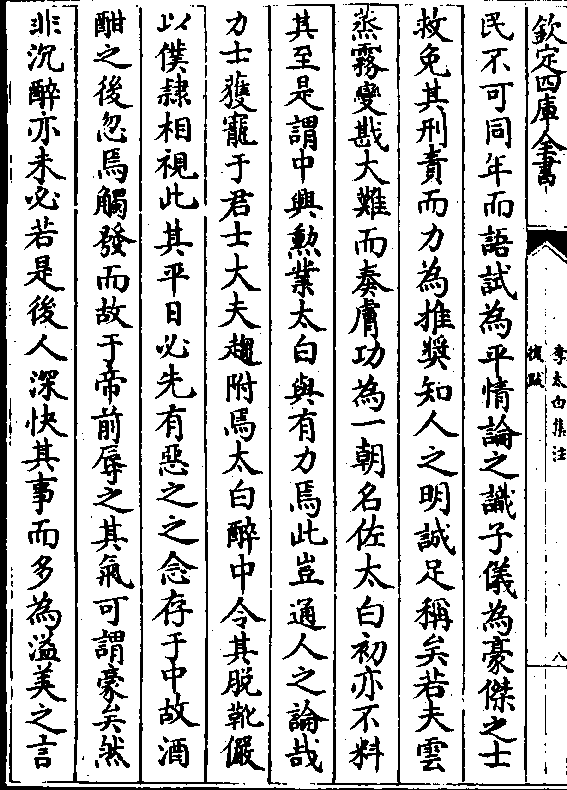 欽定四庫全書
李太白集注
後跋
八
民不可同年而語試為平情論之識子儀為豪傑之士
救免其刑責而力為推奬知人之明誠足稱矣若夫雲
蒸霧變戡大難而奏膚功為一朝名佐太白初亦不料
其至是謂中興勲業太白與有力焉此豈通人之論哉
力士獲寵于君士大夫趨附焉太白醉中令其脱靴儼
以僕隷相視此其平日必先有惡之之念存于中故酒
酣之後忽焉觸發而故于帝前辱之其氣可謂豪矣然
非沉醉亦未必若是後人深快其事而多為溢美之言